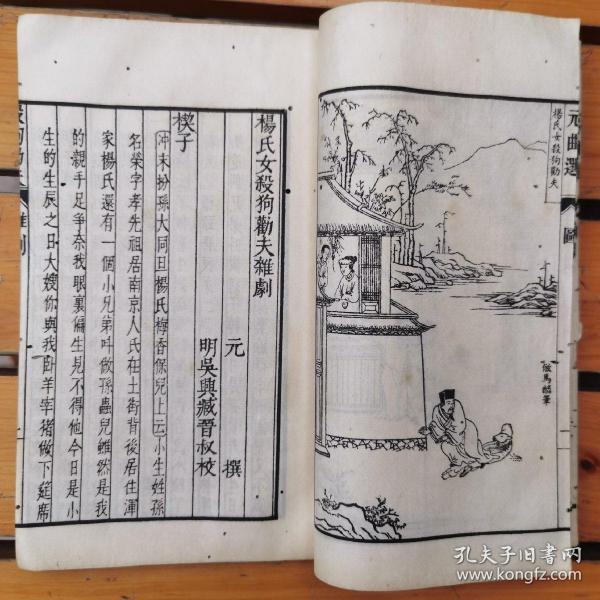 元曲選
圖
楊氏女殺狗勸夫
倣馬麟筆
楊氏女殺狗勸夫雜劇
元 撰
明吳興臧晉叔校
楔子
沖末扮孫大同旦楊氏梅香保兒上云小生姓孫
名榮字孝先祖居南京人氏在土街背後居住渾
家楊氏還有一個小兄弟叫做孫蟲兒雖然是我
的親手足爭奈我眼裏偏生見不得他今日是小
生的生辰之日大嫂你與我臥羊宰猪做下筵席
雜劇
孔夫子旧书网
www.kongfz.com